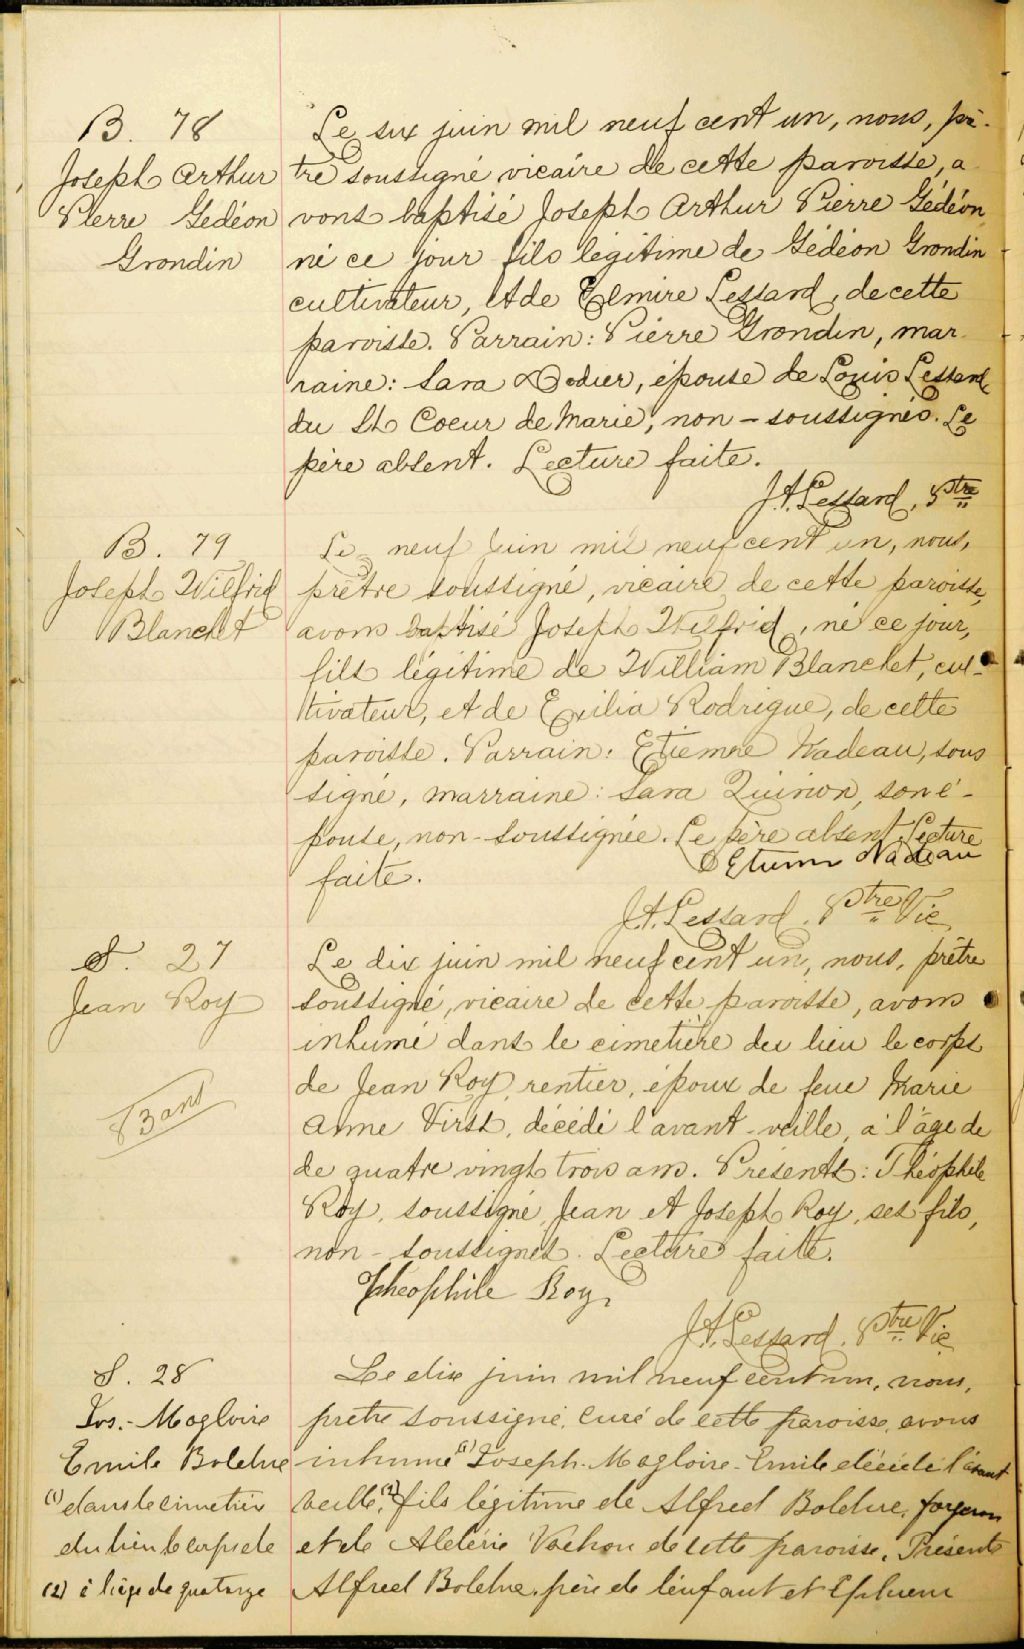 B. 78
Joseph Arthur
Pierre Gédéon
Grondin
Le six juin mil neuf cent un, nous, prê-
tre soussigné vicaire de cette paroisse, a
vons baptisé Joseph Arthur Pierre Gédéon,
né ce jour fils légitime de Gédéon Grondin
cultivateur, et de Elmire Lessard, de cette
paroisse. Parrain: Pierre Grondin, mar
raine: Sara Dodier, épouse de Louis Lessard,
du St Coeur de Marie, non-soussignés. Le
père absent. Lecture faite.
J.A. Lessard, Ptre
B. 79
Joseph Wilfrid
Blanchet
Le neuf juin mil neuf cent un, nous,
prêtre soussigné, vicaire de cette paroisse,
avons baptisé Joseph Wilfrid, né ce jour,
fils légitime de William Blanchet, cul-
tivateur, et de Exilia Rodrigue, de cette
paroisse. Parrain: Etienne Nadeau, sous
signé, marraine: Sara Quirion, son é-
pouse, non-soussignée. Le père absent. Lecture
faite. Etienne Nadeau
J.A. Lessard, Ptre Vic
S. 27
Jean Roy
83 ans
Le dix juin mil neuf cent un, nous, prêtre
soussigné, vicaire de cette paroisse, avons
inhumé dans le cimetière du lieu le corps
de Jean Roy, rentier, époux de feue Marie
Anne Virst, décédé l'avant-veille, à l'âge de
de quatre vingt trois ans. Présents: Théophile
Roy, soussigné, Jean et Joseph Roy, ses fils,
non-soussignés. Lecture faite.
Théophile Roy
J.A. Lessard, Ptre Vic
S. 28
Jos.-Magloire
Emile Bolduc
(1) dans le cimetière
du lieu le corps de
(2) à l'âge de quatorze
Le dix juin mil neuf cent un, nous,
prêtre soussigné, curé de cette paroisse, avons
inhumé (1) Joseph-Magloire-Emile décédé l'avant
veille, (2) fils légitime de Alfred Bolduc, forgeron
et de Aldérie Vachon de cette paroisse. Présents
Alfred Bolduc, père de l'enfant et Ephrem